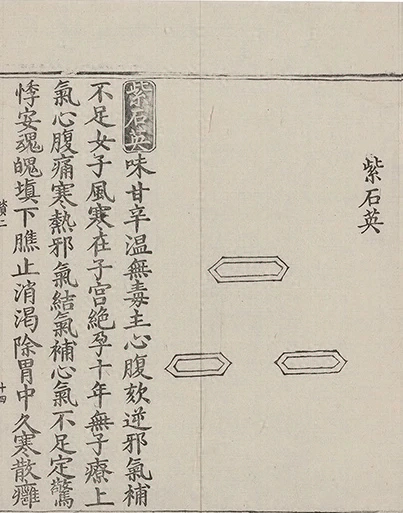 紫石英
紫石英味甘辛温無毒主心腹欬逆邪氣補
不足女子風寒在子宮絶孕十年無子療上
氣心腹痛寒熱邪氣結氣補心氣不足定驚
悸安魂魄填下膲止消渴除胃中久寒散癰
十四